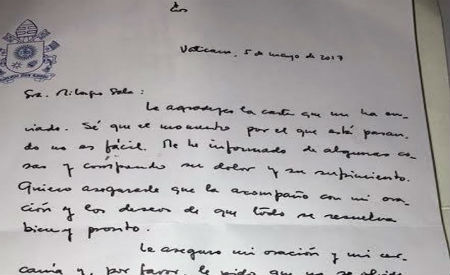 Vaticano, 5 de mayo de 2017
Sra. Milagro Sala:
Le agradezco la carta que me ha en-
viado. Sé que el momento por el que está pasan-
do no es fácil. Me he informado de algunas co-
sas y comprendo su dolor y su sufrimiento.
Quiero asegurarle que la acompaño con mi ora-
ción y los deseos de que todo se resuelva
bien y pronto.
Le aseguro mi oración y mi cer-
canía y, por favor, le pido que no se olvide